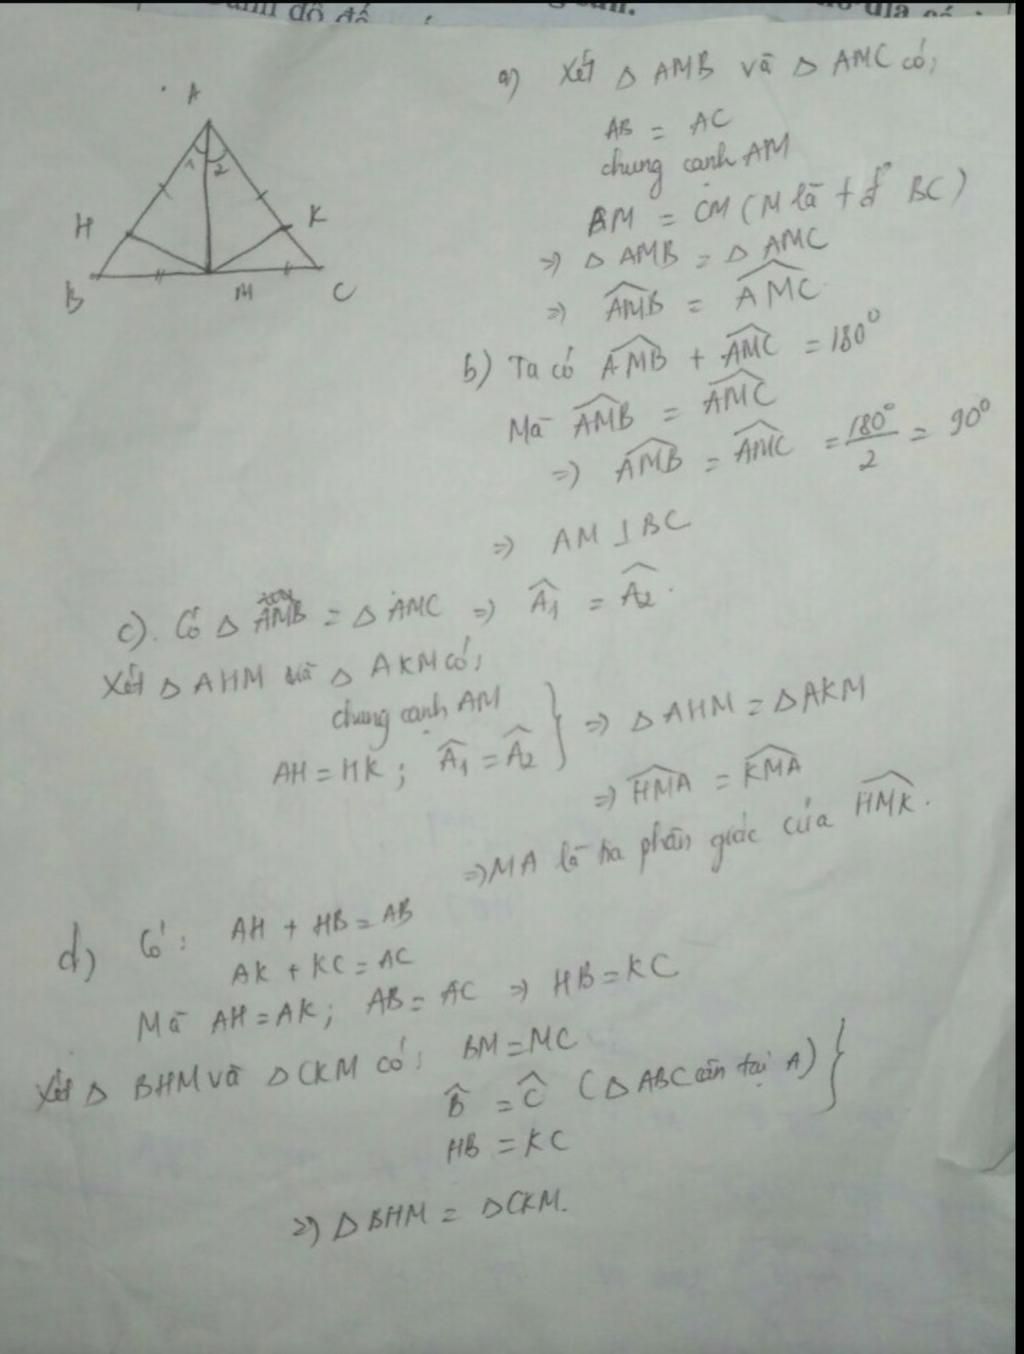 A
1 2
H
K
B
M
C
a) Xét △ AMB và △ AMC có:
AB = AC
chung cạnh AM
BM = CM (M là tđ BC)
=> △ AMB = △ AMC
=> \widehat{AMB} = \widehat{AMC}
b) Ta có \widehat{AMB} + \widehat{AMC} = 180°
Mà \widehat{AMB} = \widehat{AMC}
=> \widehat{AMB} = \widehat{AMC} = \frac{180°}{2} = 90°
=> AM ⊥ BC
c). Có △ AMB = △ AMC => \widehat{A_1} = \widehat{A_2}.
Xét △ AHM và △ AKM có:
chung cạnh AM
AH = HK ; \widehat{A_1} = \widehat{A_2} } => △ AHM = △ AKM
=> \widehat{HMA} = \widehat{KMA}
=> MA là tia phân giác của \widehat{HMK}.
d) Có: AH + HB = AB
AK + KC = AC
Mà AH = AK; AB = AC => HB = KC
Xét △ BHM và △ CKM có: BM = MC
\widehat{B} = \widehat{C} (△ ABC cân tại A) }
HB = KC
=> △ BHM = △ CKM.